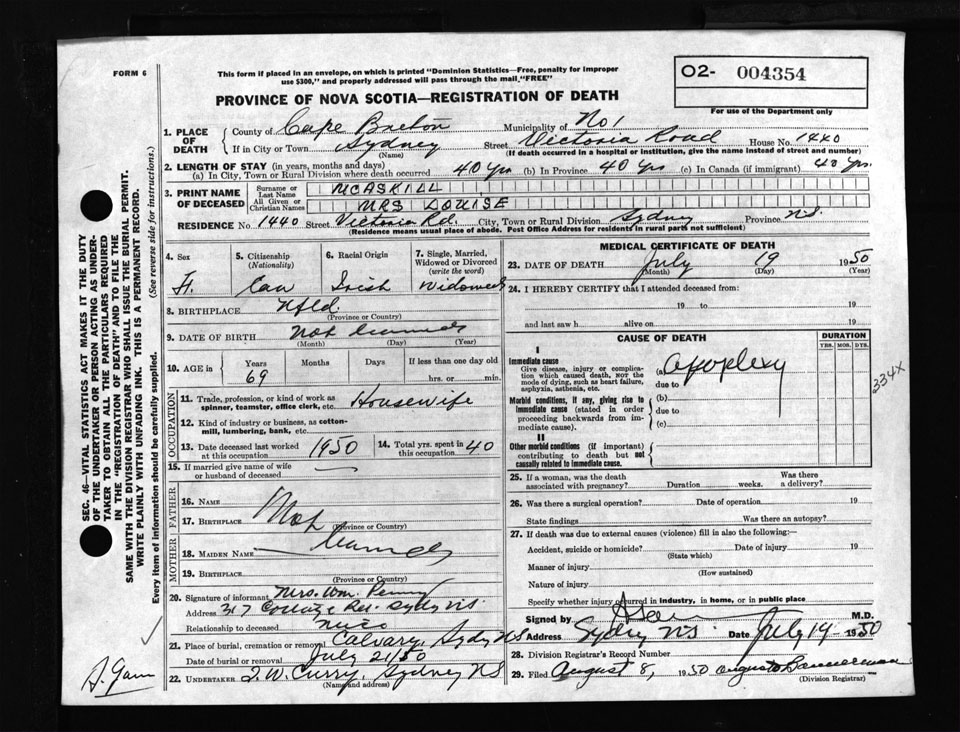 FORM 6
This form if placed in an envelope, on which is printed "Dominion Statistics—Free, penalty for improper
use $300," and properly addressed will pass through the mail, "FREE"
O2- 004354
For use of the Department only
PROVINCE OF NOVA SCOTIA—REGISTRATION OF DEATH
1. PLACE OF DEATH
County of Cape Breton Municipality of No 1
If in City or Town Sydney Street Victoria Road House No. 1440
(Name) (If death occurred in a hospital or institution, give the name instead of street and number)
2. LENGTH OF STAY (in years, months and days)
(a) In City, Town or Rural Division where death occurred 40 Yrs (b) In Province 40 Yrs (c) In Canada (if immigrant) 40 Yrs.
3. PRINT NAME OF DECEASED
Surname or Last Name MCASKILL
All Given or Christian Names MRS LOUISE
RESIDENCE No. 1440 Street Victoria Rd. City, Town or Rural Division Sydney Province N.S.
(Residence means usual place of abode. Post Office Address for residents in rural parts not sufficient)
4. Sex F.
5. Citizenship (Nationality) Can
6. Racial Origin Irish
7. Single, Married, Widowed or Divorced (write the word) Widowed
8. BIRTHPLACE Nfld
(Province or Country)
9. DATE OF BIRTH Not
(Month) (Day) (Year)
10. AGE in Years 69 Months Days If less than one day old
hrs. or min.
OCCUPATION
11. Trade, profession, or kind of work as spinner, teamster, office clerk, etc. Housewife
12. Kind of industry or business, as cotton-mill, lumbering, bank, etc.
13. Date deceased last worked at this occupation 1950
14. Total yrs. spent in this occupation 40
15. If married give name of wife or husband of deceased
FATHER
16. NAME Not
17. BIRTHPLACE
(Province or Country)
MOTHER
18. MAIDEN NAME
19. BIRTHPLACE
(Province or Country)
20. Signature of informant Mrs. Wm. Penny
Address 317 Cottage Rd. Sydy NS.
Relationship to deceased
21. Place of burial, cremation or removal Calvary, Sydy NS
Date of burial or removal July 21/50
22. UNDERTAKER J. W. Curry, Sydney NS
(Name and address)
MEDICAL CERTIFICATE OF DEATH
23. DATE OF DEATH July 19 1950
(Month) (Day) (Year)
24. I HEREBY CERTIFY that I attended deceased from:
19 to 19
and last saw h alive on 19
CAUSE OF DEATH
DURATION
YRS. MOS. DYS.
I
Immediate cause
Give disease, injury or complication which caused death, NOT the mode of dying, such as heart failure, asphyxia, asthenia, etc.
(a) apoplexy
due to
Morbid conditions, if any, giving rise to immediate cause (stated in order proceeding backwards from immediate cause).
(b)
due to
(c)
II
Other morbid conditions (if important) contributing to death but not causally related to immediate cause.
334X
25. If a woman, was the death associated with pregnancy? Duration weeks. Was there a delivery?
26. Was there a surgical operation? Date of operation 19
State findings Was there an autopsy?
27. If death was due to external causes (violence) fill in also the following:—
Accident, suicide or homicide? Date of injury 19
(State which)
Manner of injury
(How sustained)
Nature of injury
Specify whether injury occurred in industry, in home, or in public place
Signed by M.D.
Address Sydney NS Date July 19 1950
28. Division Registrar's Record Number
29. Filed August 8, 1950
(Division Registrar)
SEC. 46—VITAL STATISTICS ACT MAKES IT THE DUTY
OF THE UNDERTAKER OR PERSON ACTING AS UNDER-
TAKER TO OBTAIN ALL THE PARTICULARS REQUIRED
IN THE "REGISTRATION OF DEATH" AND TO FILE THE
SAME WITH THE DIVISION REGISTRAR WHO SHALL ISSUE THE BURIAL PERMIT.
WRITE PLAINLY WITH UNFADING INK. THIS IS A PERMANENT RECORD.
Every item of information should be carefully supplied. (See reverse side for instructions.)